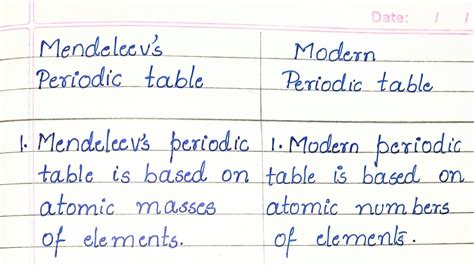 Date: / /
Mendeleev's Modern
Periodic table Periodic table
1. Mendeleev's periodic 1. Modern periodic
table is based on table is based on
atomic masses atomic numbers
of elements. of elements.